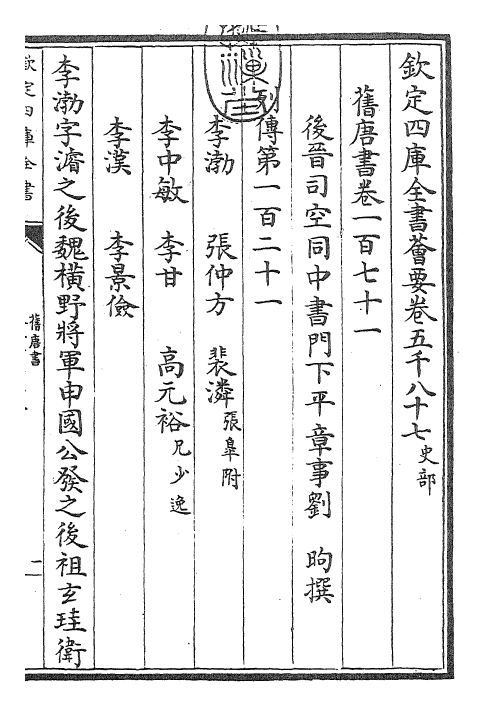 欽定四庫全書薈要卷五千八十七 史部
舊唐書卷一百七十一
後晉司空同中書門下平章事劉 昫撰
列傳第一百二十一
李渤 張仲方 裴潾 張皋附
李中敏 李甘 高元裕 兄少逸
李漢 李景儉
李渤字濬之後魏橫野將軍申國公發之後祖玄珪衛
欽定四庫全書
舊唐書